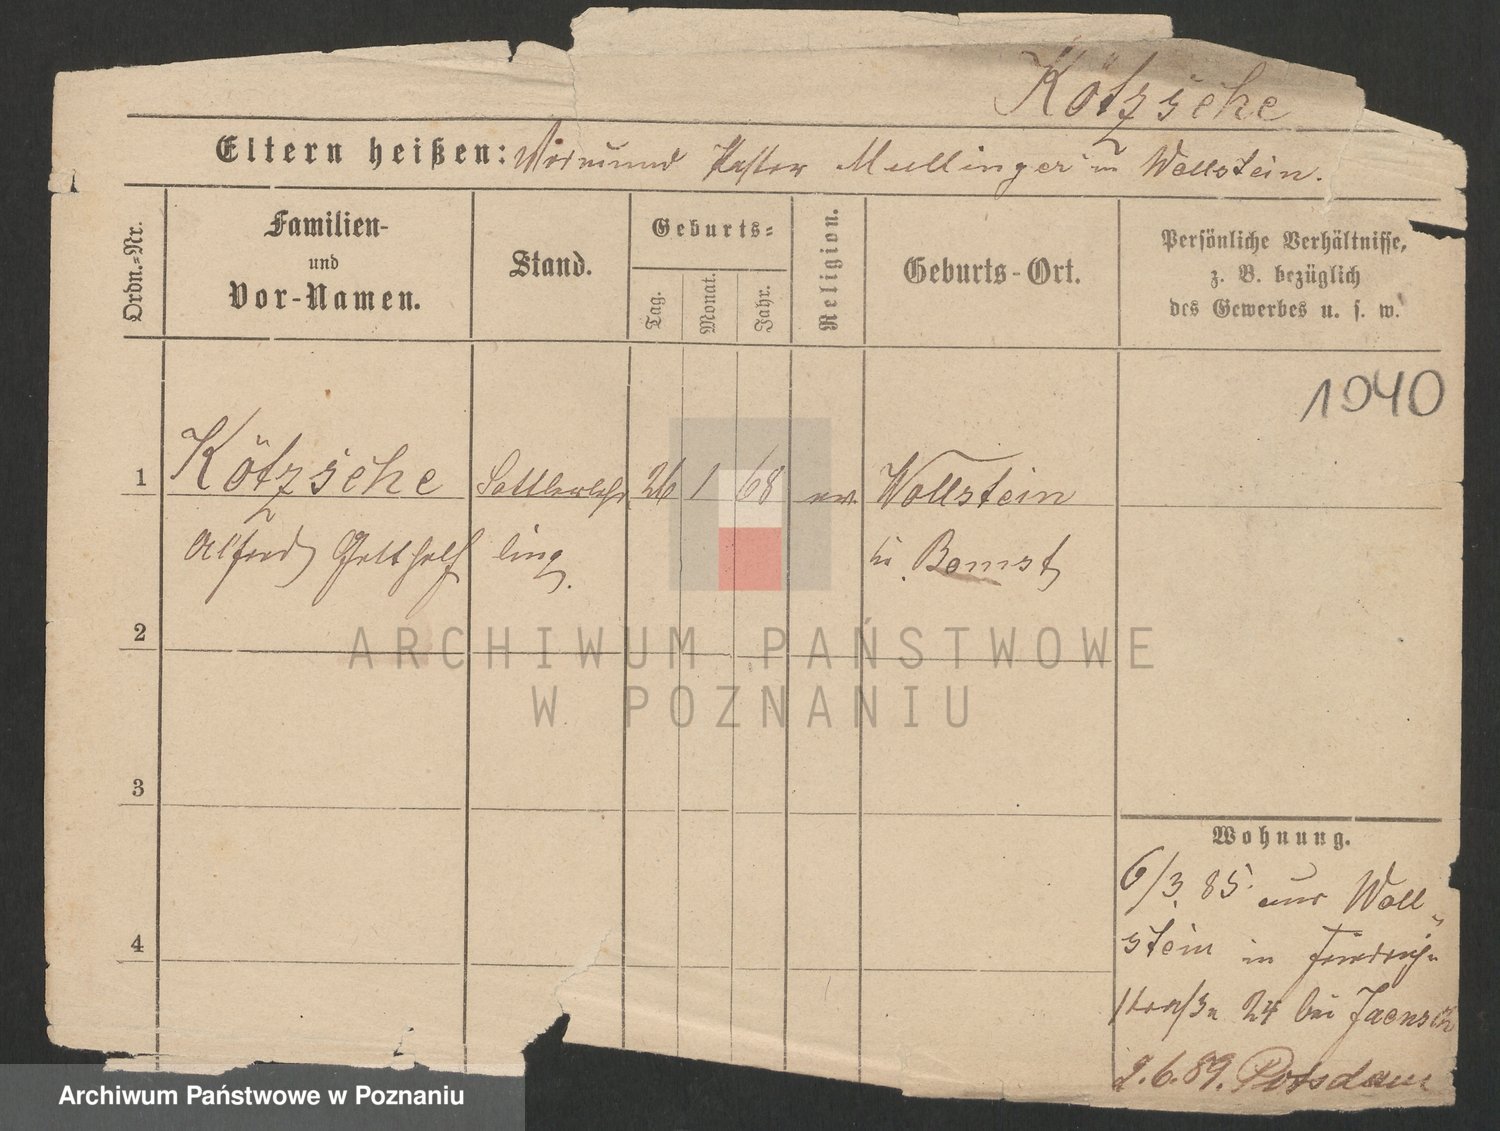 Kötzsche
Eltern heißen: Vormund Pastor Mullinger in Wollstein.
Ordn.-Nr.
Familien-
und
Vor-Namen.
Stand.
Geburts-
Tag.
Monat.
Jahr.
Religion.
Geburts-Ort.
Persönliche Verhältnisse,
z. B. bezüglich
des Gewerbes u. s. w.
1940
1 Kötzsche Sattlerlehr 26 1 68 ev. Wollstein
Alfred Gotthelf ling. Bomst
2
3
4
Wohnung.
6/3. 85. aus Woll-
stein in Friedrich-
straße 24 bei Jaensch
2.6.89. Potsdam
ARCHIWUM PAŃSTWOWE
W POZNANIU
Archiwum Państwowe w Poznaniu